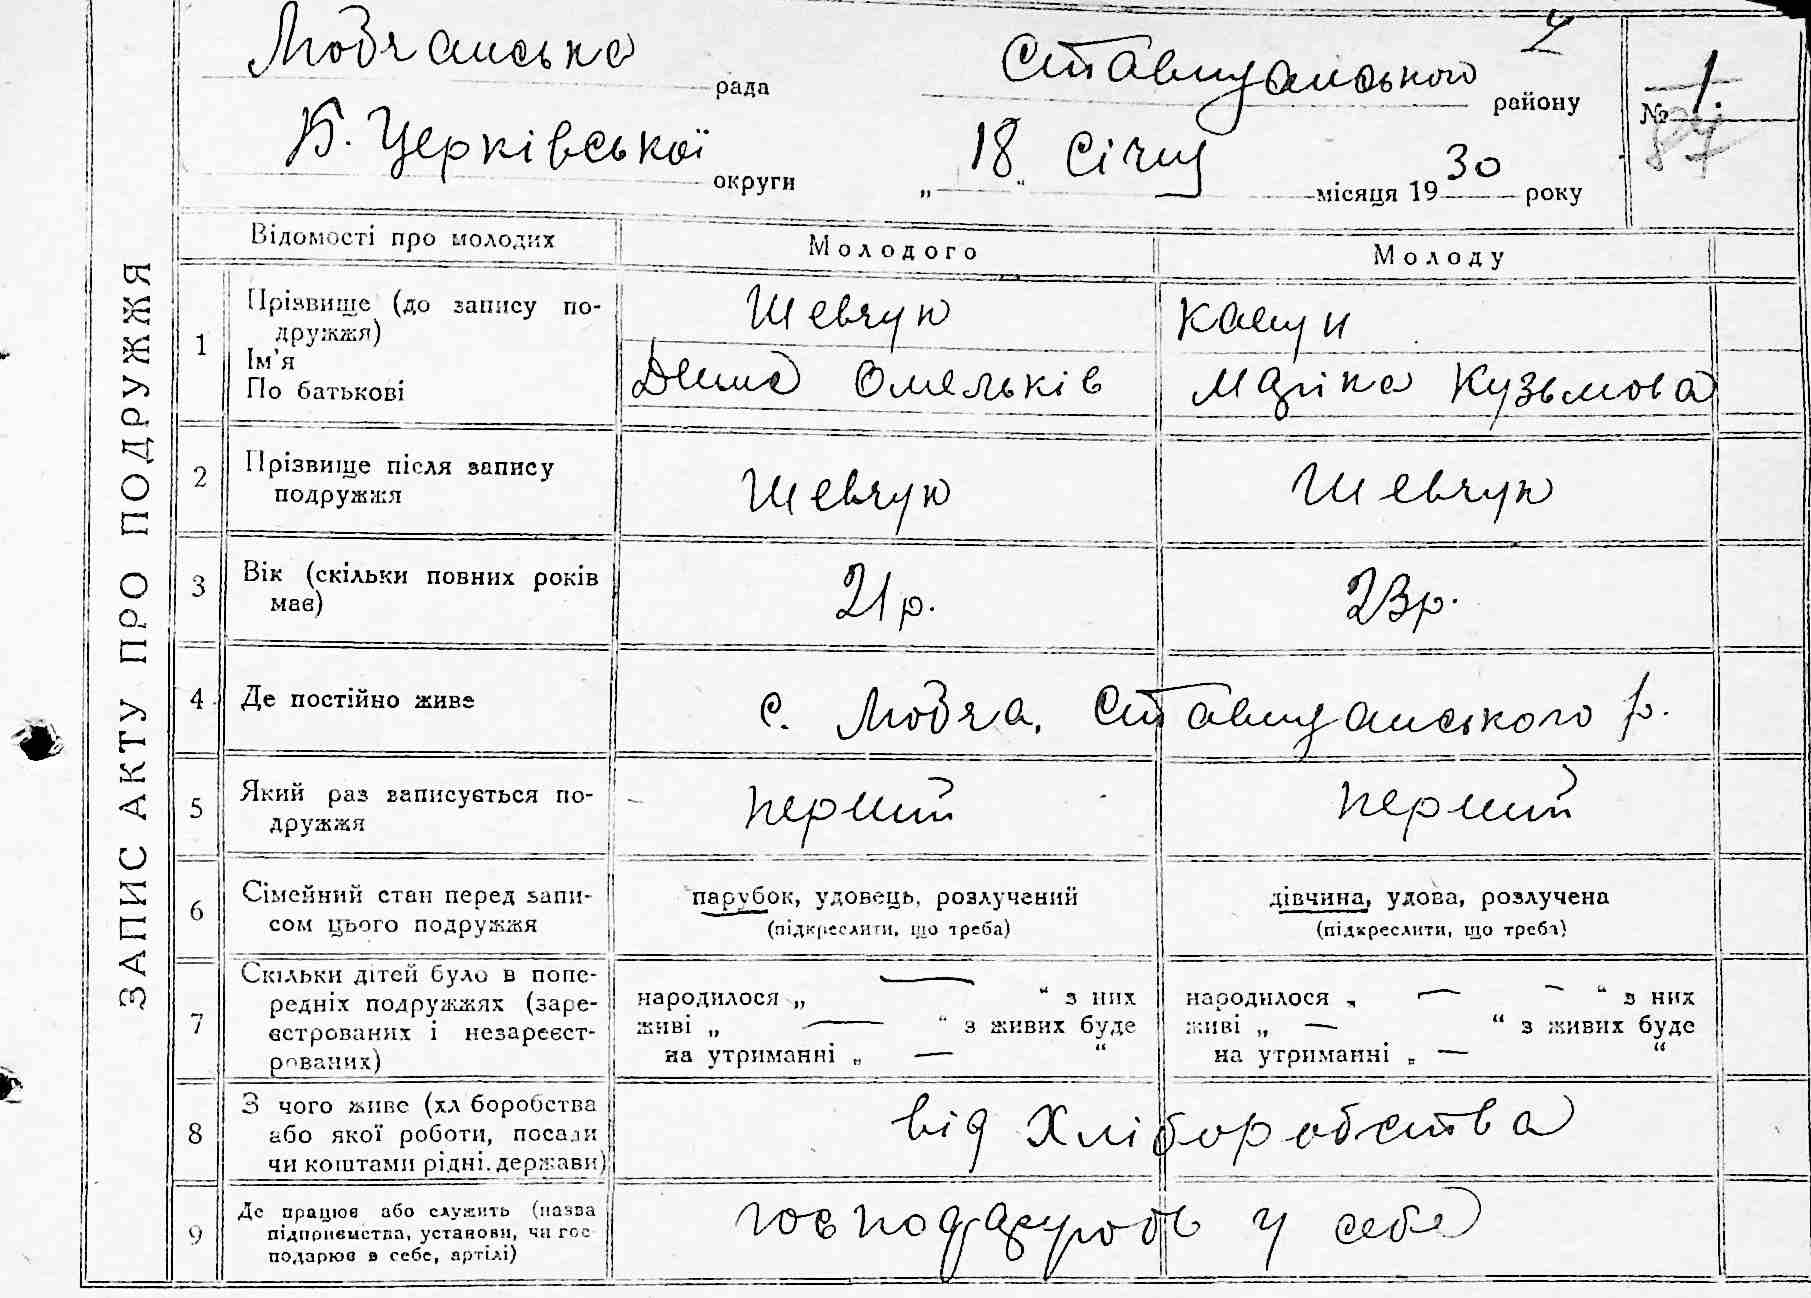 Любчанська рада Ставищанського району № 1.
Б. Церківської округи „ 18 “ Січня місяця 19 30 року
ЗАПИС АКТУ ПРО ПОДРУЖЖЯ
Відомості про молодих Молодого Молоду
1 Прізвище (до запису по-
дружжя) Шевчук
Ім'я
По батькові Омельків Кузьмова
2 Прізвище після запису
подружжя Шевчук Шевчук
3 Вік (скільки повних років
має) 21 р. 23 р.
4 Де постійно живе с. Любча, Ставищанського р.
5 Який раз записується по-
дружжя перший перший
6 Сімейний стан перед запи-
сом цього подружжя
парубок, удовець, розлучений дівчина, удова, розлучена
(підкреслити, що треба) (підкреслити, що треба)
7 Скільки дітей було в попе-
редніх подружжях (заре-
єстрованих і незареєст-
рованих)
народилося „ — “ з них народилося „ — — “ з них
живі „ — “ з живих буде живі „ — “ з живих буде
на утриманні „ — “ на утриманні „ — “
8 З чого живе (хліборобства
або якої роботи, посади
чи коштами рідні, держави)
від хліборобства
9 Де працює або служить (назва
підприємства, установи, чи гос-
подарює в себе, артілі)
у себе